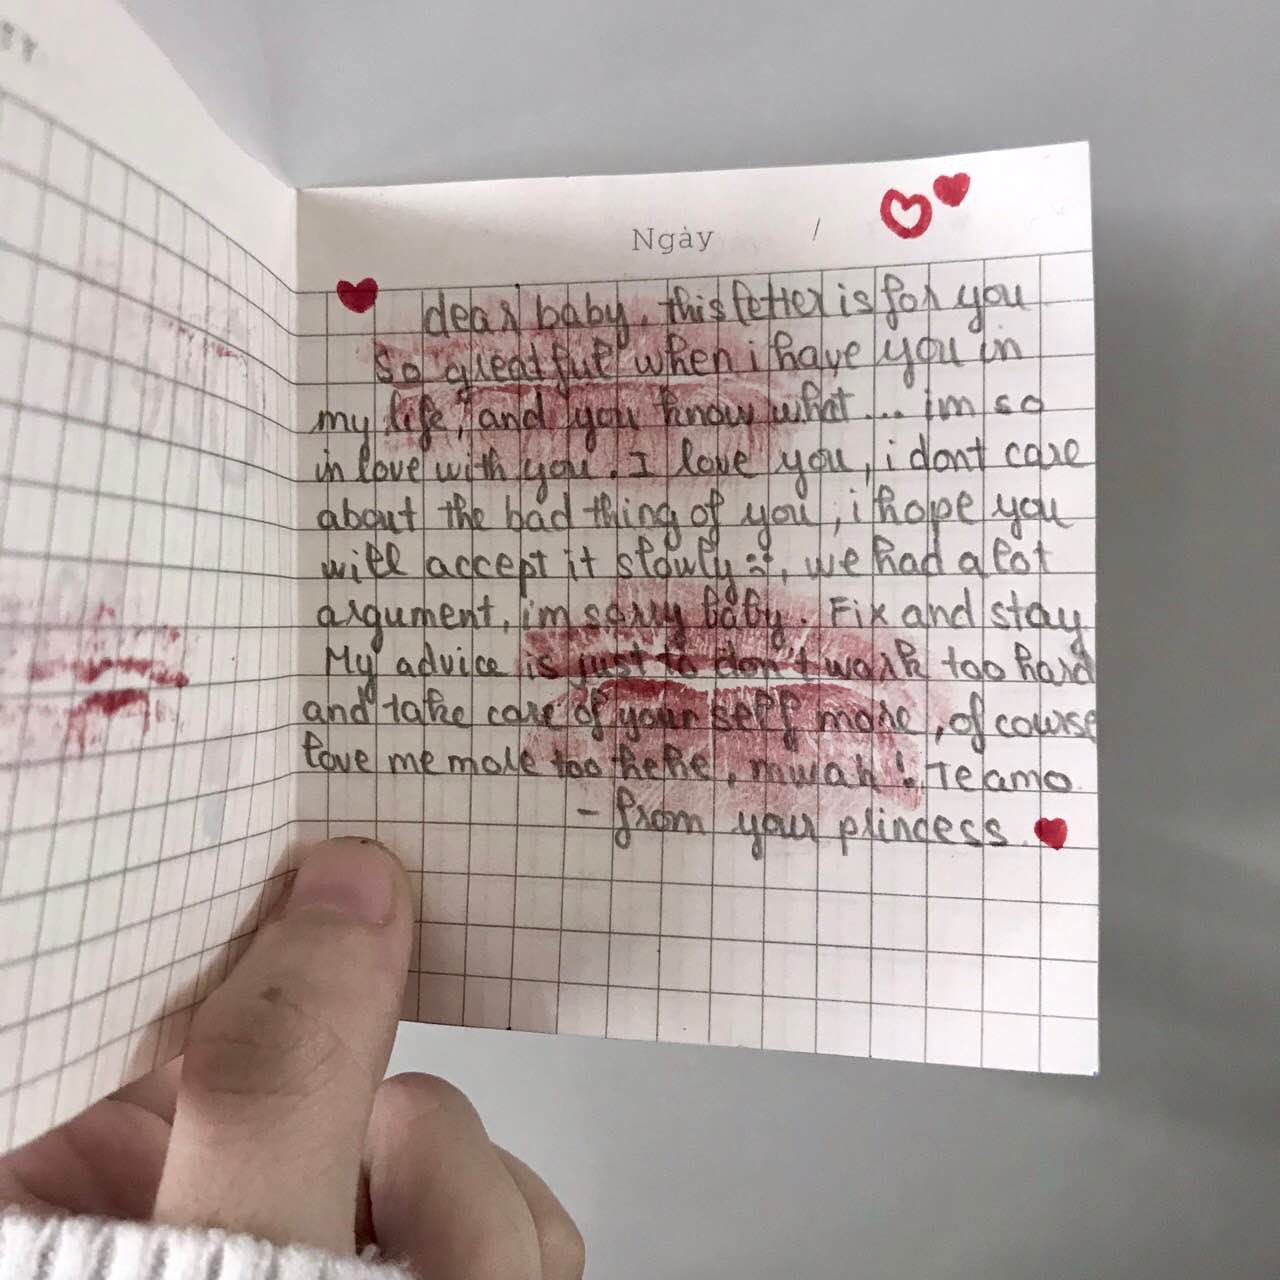 Ngày /
dear baby, this letter is for you
so greatful when i have you in
my life, and you know what... im so
in love with you. I love you, i dont care
about the bad thing of you, i hope you
will accept it slowly :), we had a lot
argument, im sorry baby. Fix and stay
My advice is just to don't work too hard
and take care of your self more, of course
love me more too hehe, mwah! Te amo
- from your princess.